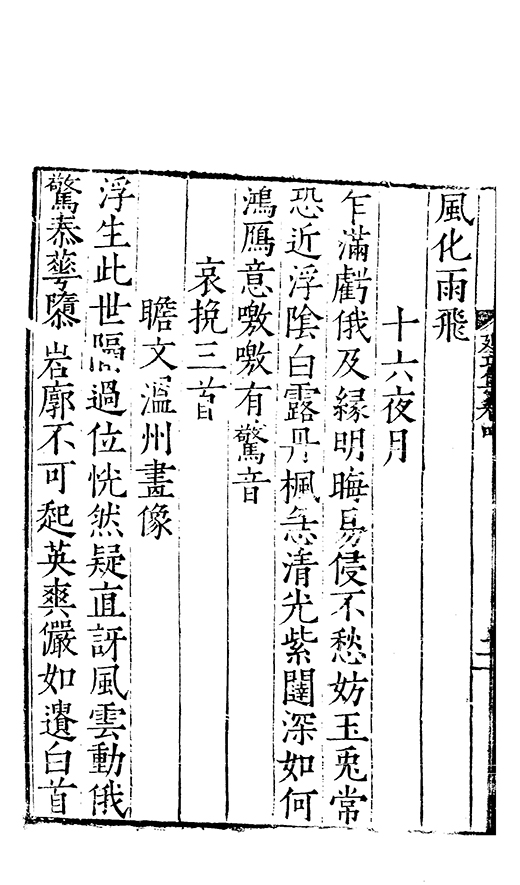 風化雨飛
十六夜月
乍滿虧俄及緣明晦易侵不愁妨玉兎常
恐近浮隂白露丹楓急清光紫闥深如何
鴻鴈意嗷嗷有驚音
哀挽三首
瞻文溫州畫像
浮生此世隔過位恍然疑直訝風雲動俄
驚泰華隳岩廓不可起英爽儼如遺白首